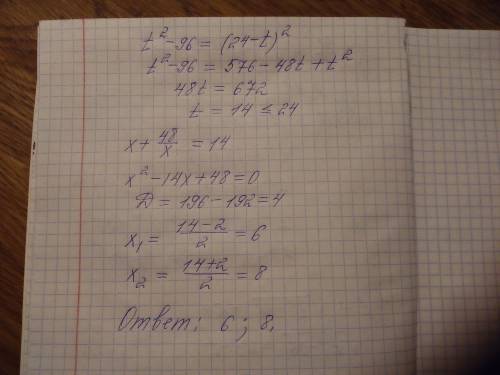 t²-96 = (24-t)²
t²-96 = 576-48t+t²
48t = 672
t = 14 ≤ 24
x + 48/x = 14
x²-14x+48=0
D = 196-192=4
x₁ = (14-2)/2 = 6
x₂ = (14+2)/2 = 8
Ответ: 6; 8.